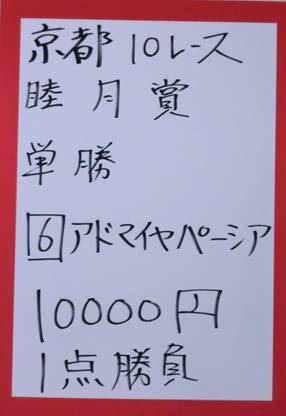 京都10レース
睦月賞
単勝
6アドマイヤペーシア
10000円
1点勝負